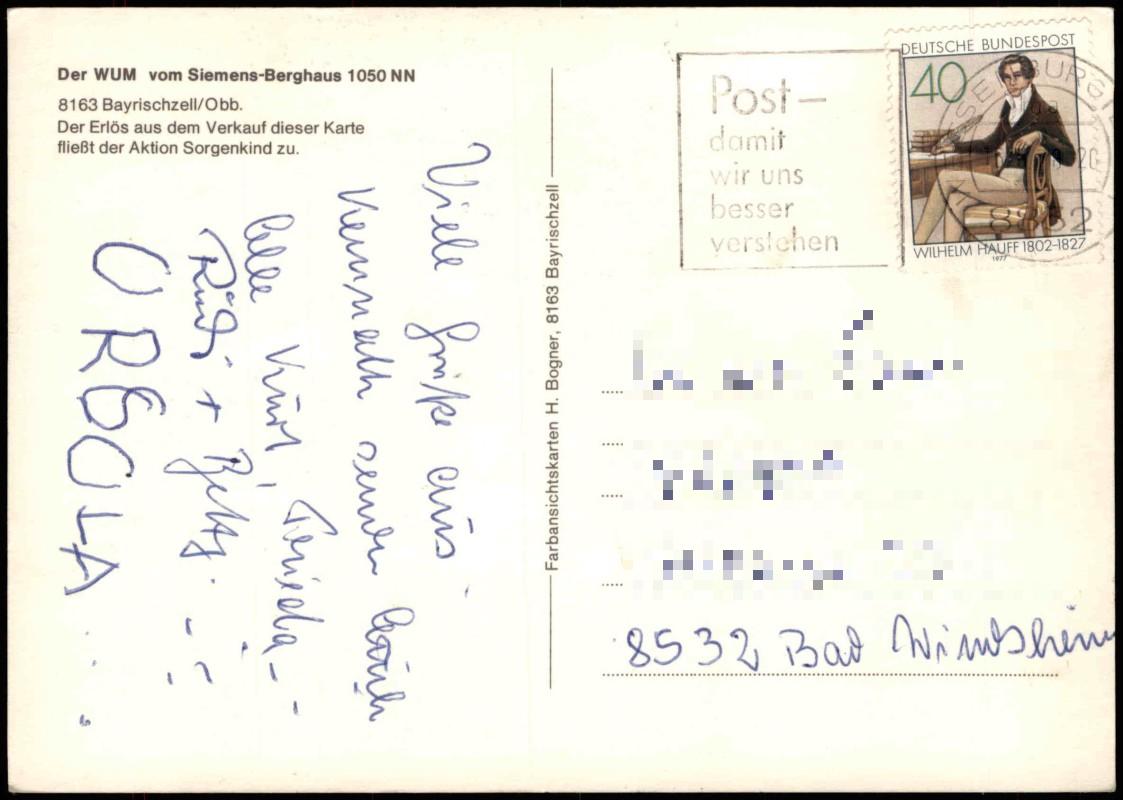 Der WUM vom Siemens-Berghaus 1050 NN
8163 Bayrischzell/Obb.
Der Erlös aus dem Verkauf dieser Karte
fließt der Aktion Sorgenkind zu.
Viele Grüße aus
Kemnath senden Euch
alle Kurt,
Rudi + Betty.
Farbansichtskarten H. Bogner, 8163 Bayrischzell
Post–
damit
wir uns
besser
verstehen
DEUTSCHE BUNDESPOST
40
WILHELM HAUFF 1802-1827
1977
8532 Bad Windsheim